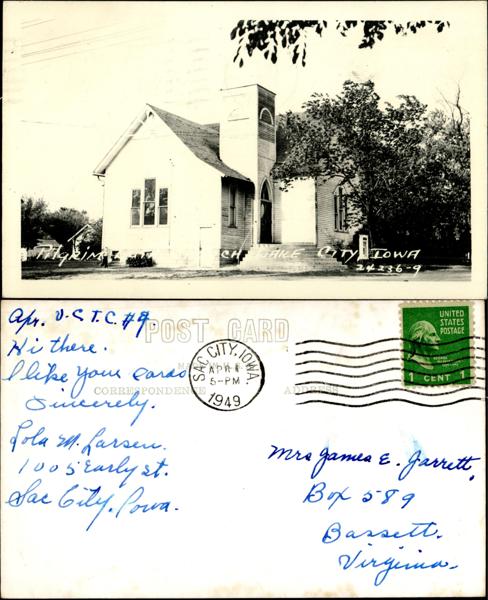 PILGRIM CH LAKE CITY, IOWA
24236-9
Apr. V.C.T.C. #9
POST CARD
Hi there.
I like your cards
CORRESPONDENCE
ADDRESS
Sincerely.
Lola M. Larsen.
1005 Early st.
Sac City, Iowa.
SAC CITY, IOWA.
APR
5-PM
1949
UNITED
STATES
POSTAGE
1 CENT 1
Mrs James E. Jarrett,
Box 589
Bassett.
Virginia.